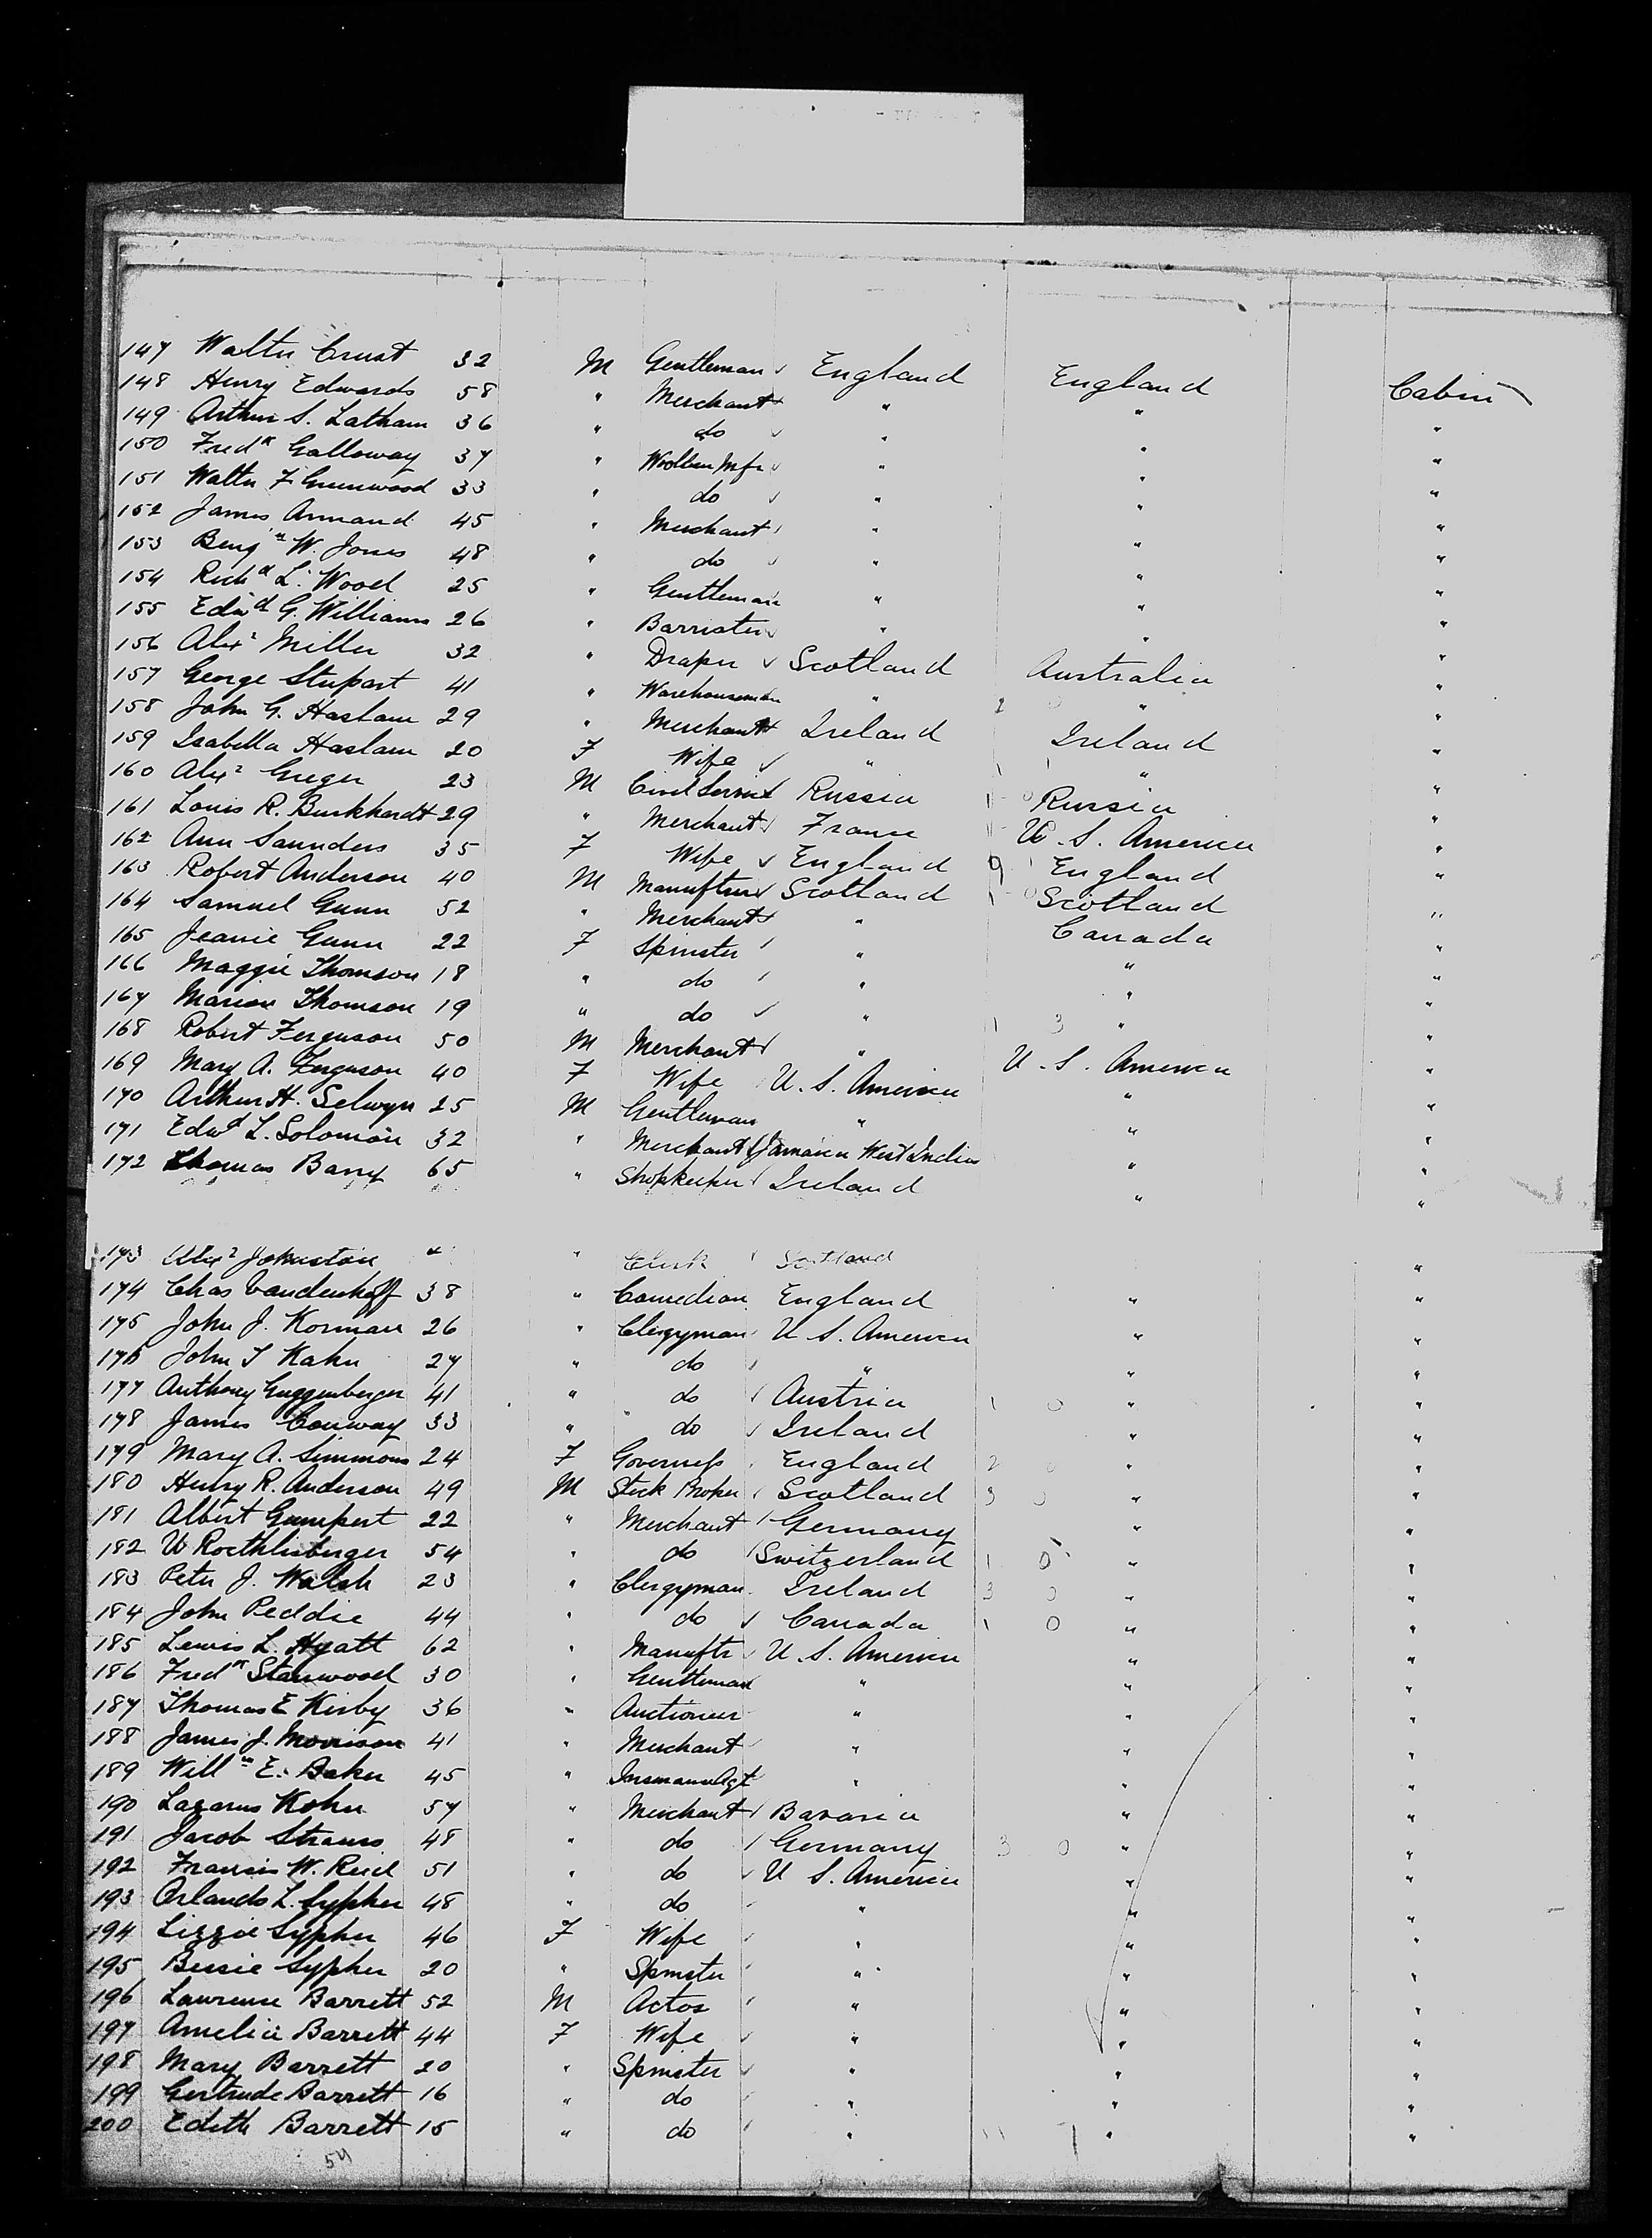 147 Walter Crust 32 M Gentleman England England Cabin
148 Henry Edwards 58 " Merchant " " "
149 Arthur S. Latham 36 " do " " "
150 Fredk Galloway 37 " Woollen Mfr " " "
151 Walter F Greenwood 33 " do " " "
152 James Armand 45 " Merchant " " "
153 Benjn W. Jones 48 " do " " "
154 Richd L. Wood 25 " Gentleman " " "
155 Edwd G. Williams 26 " Barrister " " "
156 Alexr Miller 32 " Draper Scotland Australia "
157 George Stupart 41 " Warehouseman " " "
158 John G. Haslam 29 " Merchant Ireland Ireland "
159 Isabella Haslam 20 F Wife " " "
160 Alexr Greger 23 M Civil Servant Russia Russia "
161 Louis R. Burkhardt 29 " Merchant France U.S. America "
162 Ann Saunders 35 F Wife England England "
163 Robert Anderson 40 M Manuftur Scotland Scotland "
164 Samuel Gunn 52 " Merchant " Canada "
165 Jeanie Gunn 22 F Spinster " " "
166 Maggie Thomson 18 " do " " "
167 Marion Thomson 19 " do " " "
168 Robert Ferguson 50 M Merchant " U.S. America "
169 Mary A. Ferguson 40 F Wife U.S. America " "
170 Arthur H. Selwyn 25 M Gentleman " " "
171 Edwd L. Solomon 32 " Merchant Jamaica West Indies " "
172 Thomas Barry 65 " Shopkeeper Ireland " "
173 Alexr Johnston " Clerk Scotland "
174 Chas Vandenhoff 38 " Comedian England " "
175 John J. Korman 26 " Clergyman U.S. America " "
176 John T Kahn 27 " do " " "
177 Anthony Guggenberger 41 " do Austria " "
178 James Conway 33 " do Ireland " "
179 Mary A. Simmons 24 F Governess England " "
180 Henry R. Anderson 49 M Stock Broker Scotland " "
181 Albert Gumpert 22 " Merchant Germany " "
182 W Roethlisberger 54 " do Switzerland " "
183 Peter J. Walsh 23 " Clergyman Ireland " "
184 John Peddie 44 " do Canada " "
185 Lewis L. Hyatt 62 " Manuftr U.S. America " "
186 Fredk Stanwood 30 " Gentleman " " "
187 Thomas E Kirby 36 " Auctioneer " " "
188 James J. Morrison 41 " Merchant " " "
189 Willm E. Baker 45 " Insurance Agt " " "
190 Lazarus Kohn 57 " Merchant Bavaria " "
191 Jacob Strauss 48 " do Germany " "
192 Francis W. Reid 51 " do U.S. America " "
193 Orlando L. Sypher 48 " do " " "
194 Lizzie Sypher 46 F Wife " " "
195 Bessie Sypher 20 " Spinster " " "
196 Lawrence Barrett 52 M Actor " " "
197 Amelia Barrett 44 F Wife " " "
198 Mary Barrett 20 " Spinster " " "
199 Gertrude Barrett 16 " do " " "
200 Edith Barrett 15 " do " " "
54